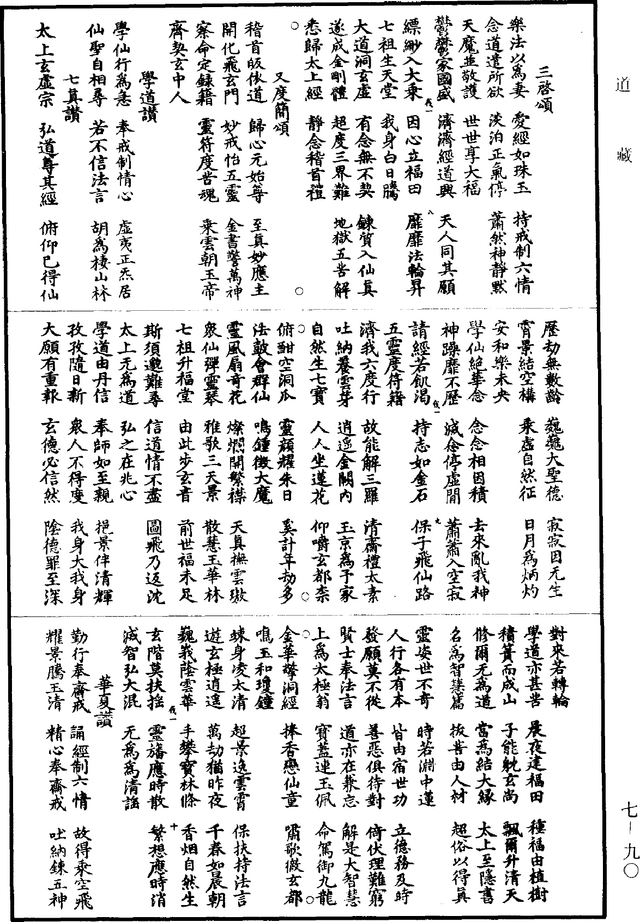 道藏
三啓頌
樂法以為妻　愛經如珠玉　持戒制六情
念道遣所欲　淡泊正氣停　蕭然神靜默
天魔並敬護　世世享大福
鬱鬱家國盛　濟濟經道興　天人同其願
縹緲入大乘　因心立福田　靡靡法輪昇
七祖生天堂　我身白日騰
大道洞玄虛　有念無不契　鍊質入仙真
遂成金剛體　超度三界難　地獄五苦解
悉歸太上經　靜念稽首禮
又度簡頌
稽首皈依道　歸心元始尊　至真妙應主
開化飛玄門　妙戒怡五靈　金書警萬神
察命定錄籍　靈符度苦魂　乘雲朝玉帝
齊契玄中人
學道讚
學仙行為急　奉戒制情心　虛夷正炁居
仙聖自相尋　若不信法言　胡為棲山林
七真讚
太上玄虛宗　弘道尊其經　俯仰已得仙
歷劫無數齡　巍巍大聖德　寂寂因无生
霄景結空構　乘虛自然征　日月為炳灼
安和樂未央
學仙絕華念　念念相因積　去來亂我神
神躁靡不歷　減念停虛閒　蕭蕭入空寂
請經若飢渴　持志如金石　保子飛仙路
五靈度符籍
濟我六度行　故能解三羅　清齋禮太素
吐納養雲芽　逍遙金闕內　玉京為予家
自然生七寶　人人坐蓮花　仰嚼玄都柰
俯酣空洞瓜　靈顏耀朱日　奚計年劫多
法鼓會群仙　鳴鍾徵大魔
靈風扇奇花　燦爛開繁襟　天真撫雲璈
眾仙彈靈琴　雅歌三天景　散慧玉華林
七祖升福堂　由此步玄音　前世福未足
斯須邈難尋　信道情不盡　圖飛乃返沈
太上无為道　弘之在兆心
學道由丹信　奉師如至親　挹景伴清輝
孜孜隨日新　眾人不得度　我身大我身
大願有重報　玄德必信然　陰德罪至深
對來若轉輪　晨夜建福田　種福由植樹
學道亦甚苦　子能耽玄尚　飄爾升清天
積簣而成山
修爾无為道　當為結大緣　太上至隱書
名為智慧篇　拔苦由人材　超俗以得真
靈姿世不奇　時若淵中蓮
人行各有本　皆由宿世功　立德務及時
發願莫不從　善惡俱待對　倚伏理難窮
賢士奉法言　道亦在兼忘　解是大智慧
上為太極翁　寶蓋連玉佩　命駕御九龍
金華擎洞經　捧香戀仙童　嘯歌徹玄都
鳴玉和瓊鐘
竦身凌太清　超景逸雲霄　保扶持法言
遊玄極逍遙　萬劫猶昨夜　千春如晨朝
巍峩蔭雲華　手攀寶林條　香烟自然生
玄階莫扶搖　靈旛應時散　繁想應時消
滅智弘大混　无為為清謡
華夏讚
勤行奉齋戒　誦經制六情　故得乘空飛
耀景騰玉清　精心奉齋戒　吐納鍊五神
七—九〇